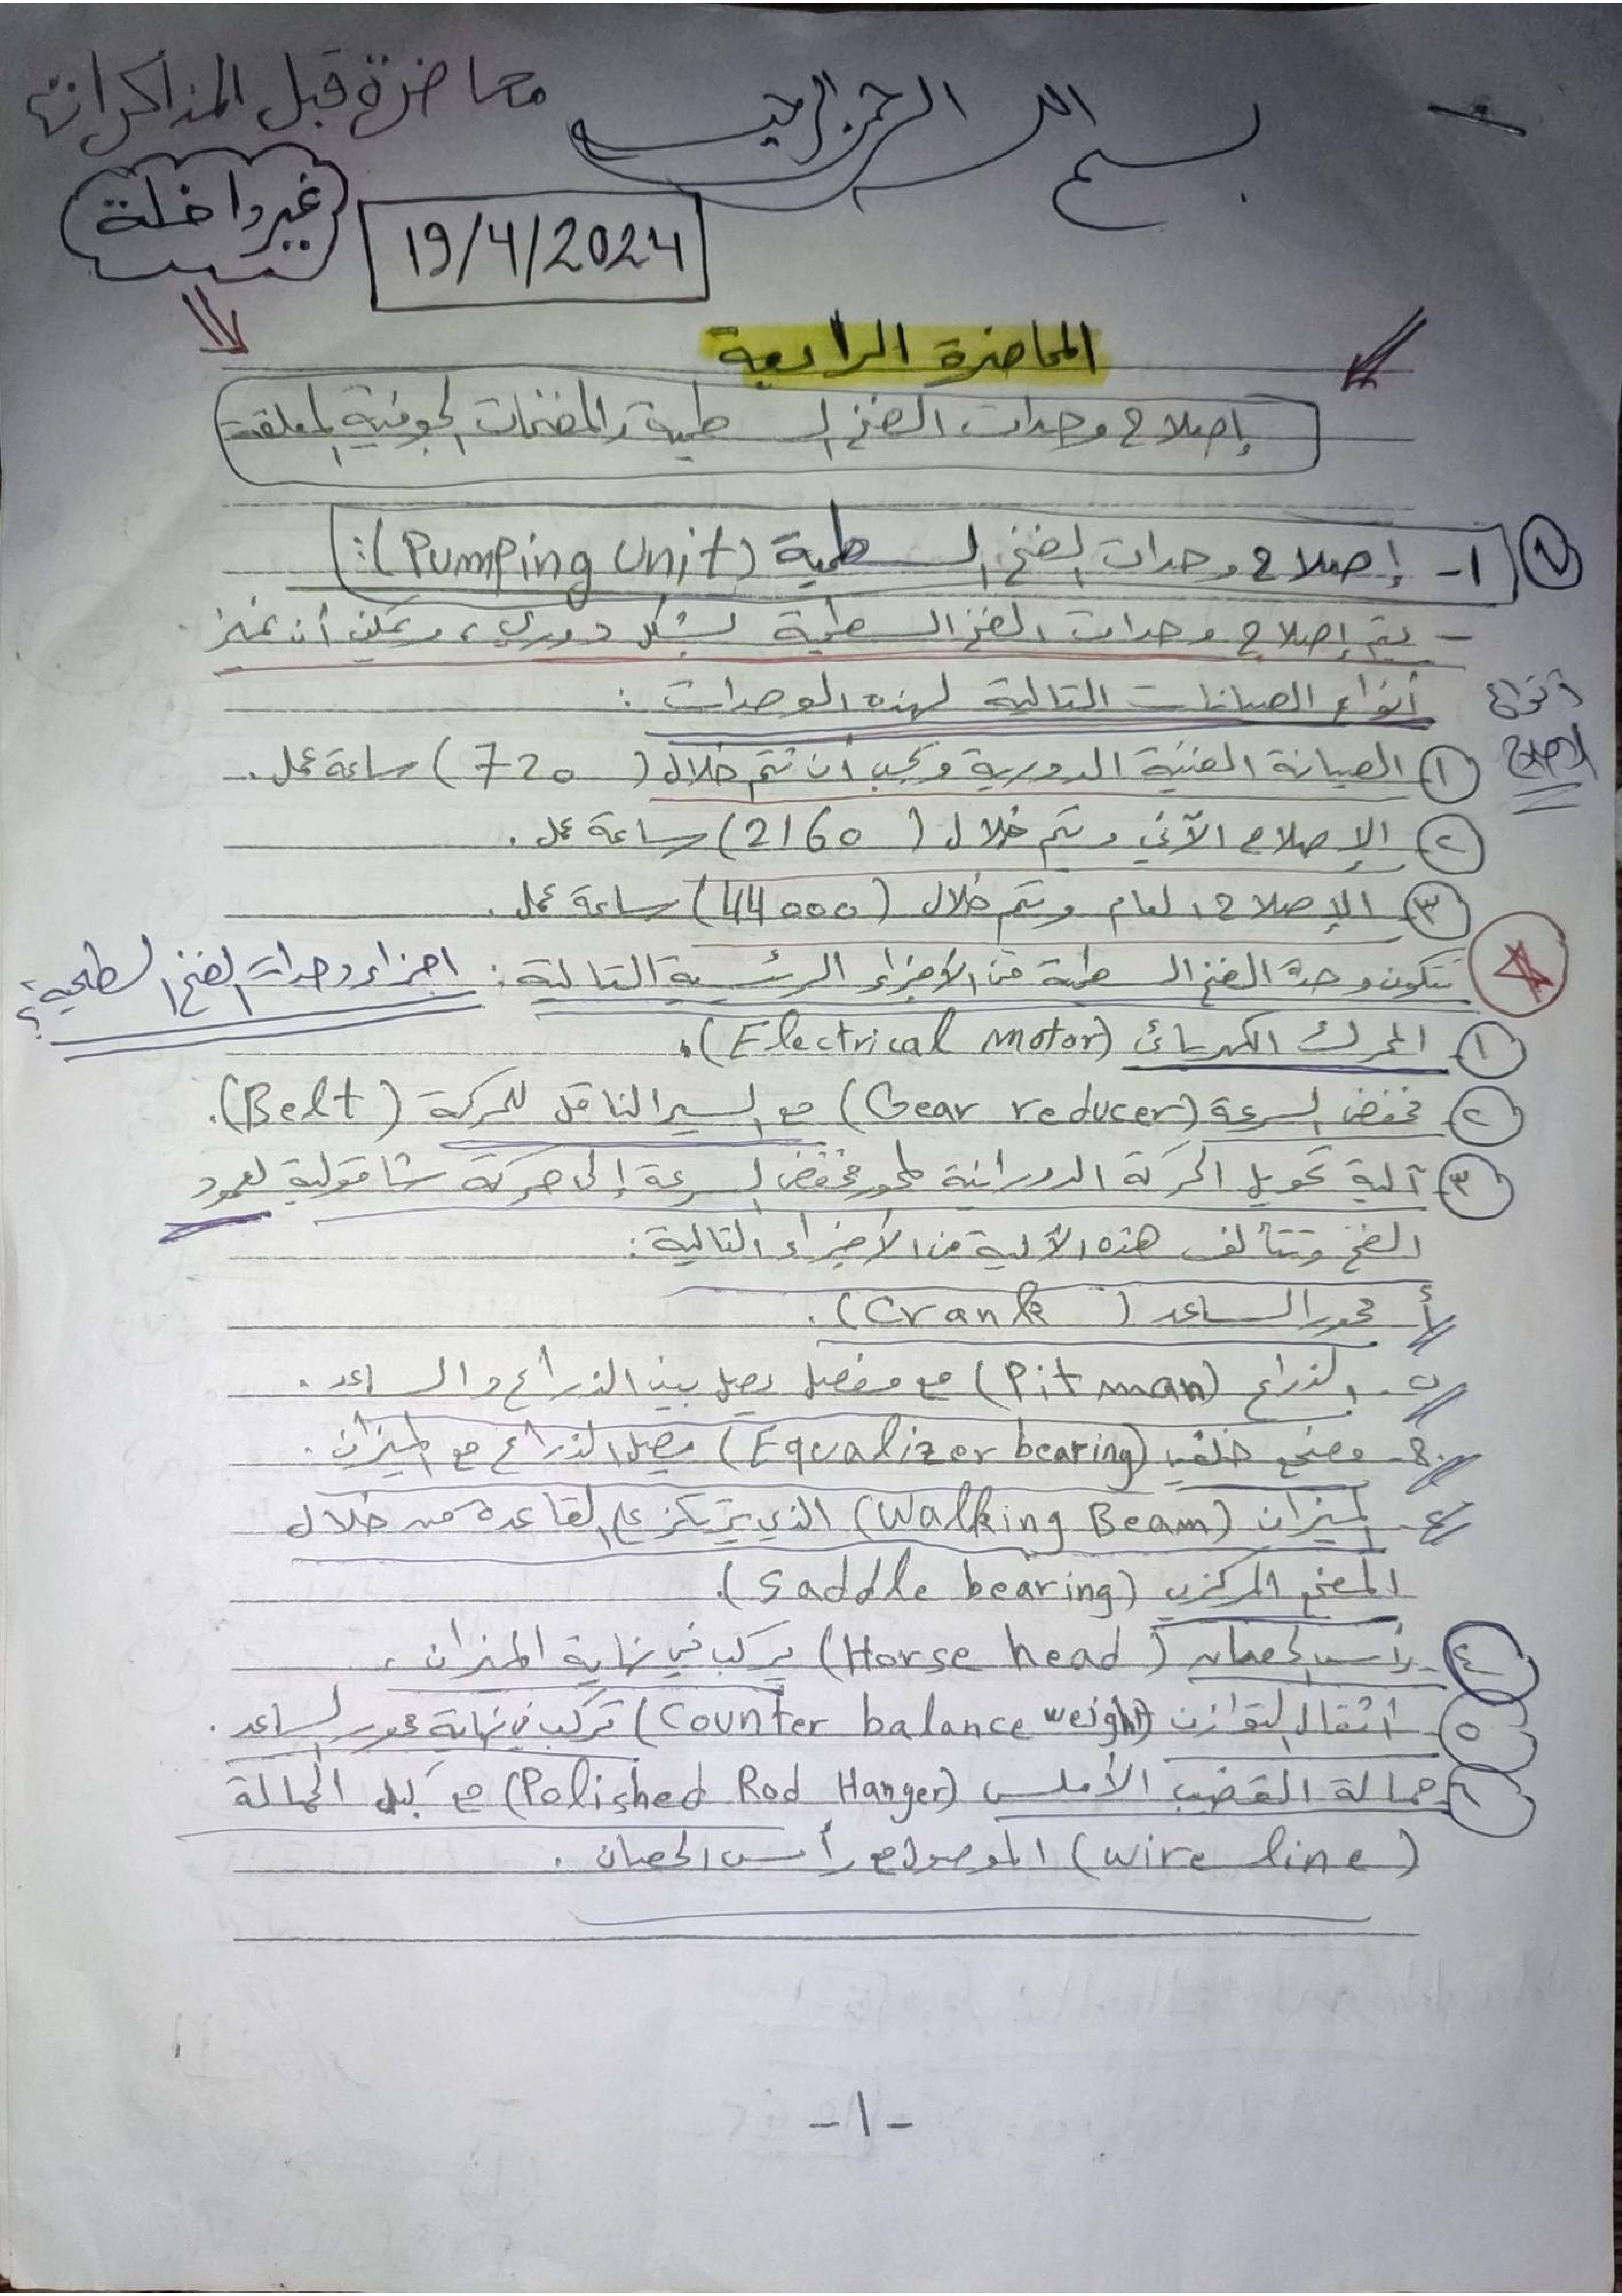 بسم الله الرحمن الرحيم
محاضرة قبل المذاكرات
غير داخلة
19/4/2024
المحاضرة الرابعة
إصلاح وحدات الضخ السطحية والمضخات الجوفية المعلقة
1- إصلاح وحدات الضخ السطحية (Pumping Unit):
- يتم إصلاح وحدات الضخ السطحية بشكل دوري، ويمكن أن نميز
أنواع الصيانات التالية لهذه الوحدات:
أنواع
الإصلاح
① الصيانة الفنية الدورية ويجب أن تتم خلال (720) ساعة عمل.
② الإصلاح الآني ويتم خلال (2160) ساعة عمل.
③ الإصلاح العام ويتم خلال (44000) ساعة عمل.
تتكون وحدة الضخ السطحية من الأجزاء الرئيسية التالية: اجزاء وحدات الضخ السطحية؟
① المحرك الكهربائي (Electrical motor).
② مخفض السرعة (Gear reducer) مع السير الناقل للحركة (Belt).
③ آلية تحويل الحركة الدورانية لمحور مخفض السرعة إلى حركة شاقولية لعمود
الضخ وتتألف هذه الآلية من الأجزاء التالية:
أ- محور الساعد (Crank).
ب- الذراع (Pitman) مع مفصل يصل بين الذراع والساعد.
ج- مضجع خلفي (Equalizer bearing) يصل الذراع مع الميزان.
د- الميزان (Walking Beam) الذي يرتكز على القاعدة من خلال
المضجع المركزي (Saddle bearing).
④ رأس الحصان (Horse head) يركب في نهاية الميزان.
⑤ أثقال التوازن (Counter balance weight) تركب في نهاية محور الساعد.
⑥ حمالة القضيب الأملس (Polished Rod Hanger) مع كبل الحمالة
(wire line) الموصول مع رأس الحصان.
-1-